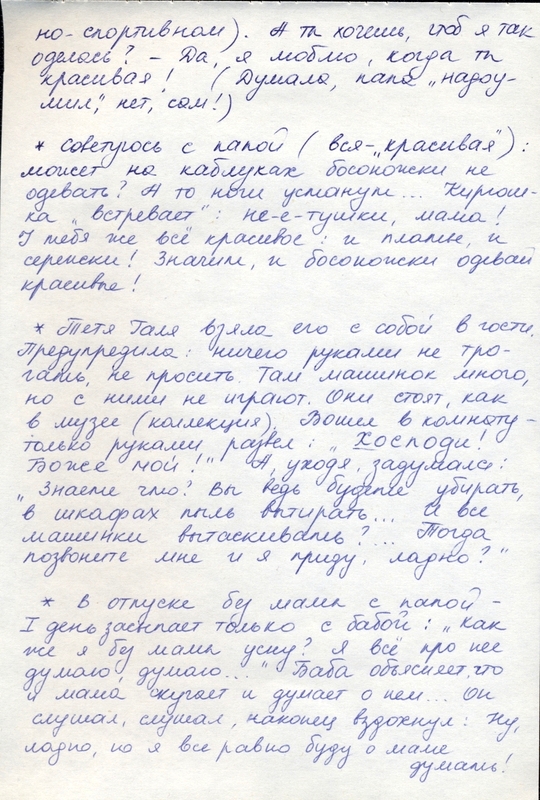 но-спортивном). А ты хочешь, чтоб я так
оделась? – Да, я люблю, когда ты
красивая! (Думала, папа „надоу-
мил", нет, сам!)
* Советуюсь с папой (вся-„красивая"):
может на каблуках босоножки не
одевать? А то ноги устанут... Кирюш-
ка „встревает": не-е-тушки, мама!
У тебя же всё красивое: и платье, и
сережки! Значит, и босоножки одевай
красивые!
* Тетя Галя взяла его с собой в гости.
Предупредила: ничего руками не тро-
гать, не просить. Там машинок много,
но с ними не играют. Они стоят, как
в музее (коллекция). Вошел в комнату –
только руками развел: „Хосподи!
Боже мой!" А, уходя, задумался:
„Знаете что? Вы ведь будете убирать,
в шкафах пыль вытирать... И все
машинки вытаскивать?... Тогда
позвоните мне и я приду, ладно?"
* В отпуске без мамы с папой –
I день засыпает только с бабой: „Как
же я без мамы усну? Я всё про нее
думаю, думаю..." Баба объясняет, что
и мама скучает и думает о нем... Он
слушал, слушал, наконец вздохнул: Ну,
ладно, но я все равно буду о маме
думать!